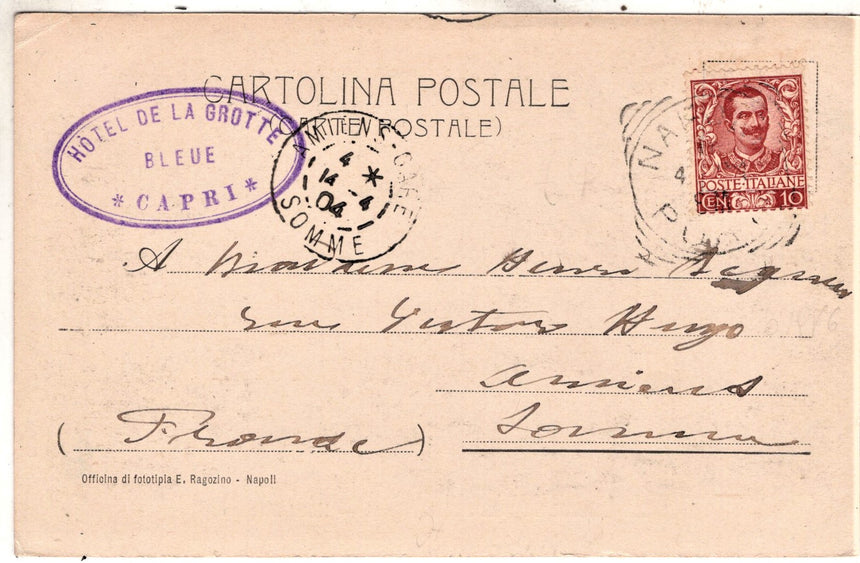 CARTOLINA POSTALE
(CARTE POSTALE)
HÔTEL DE LA GROTTE
BLEUE
* CAPRI *
AMIENS-GARE
4 *
14 - 4
04
SOMME
NAP
4
POSTE·ITALIANE
CEN. 10
A Madame Henri
rue Victor Hugo
Amiens
Somme
(France)
Officina di fototipia E. Ragozino - Napoli